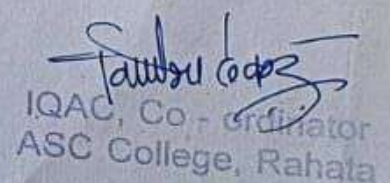 IQAC, Co - ordinator
ASC College, Rahata